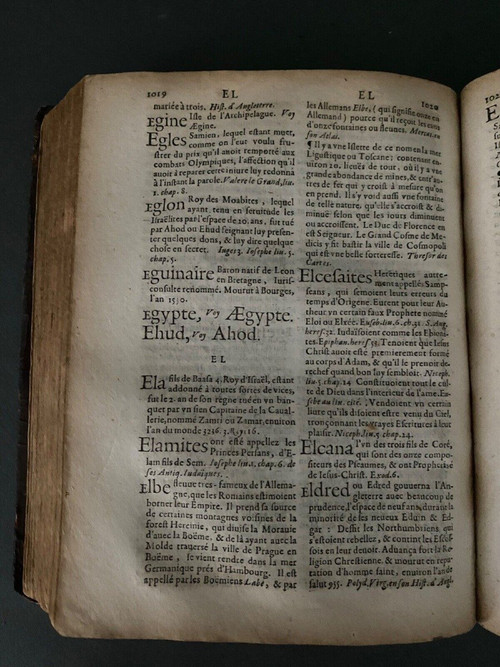 1019 EL
mariée à trois. Hist. d'Angleterre.
Egine Isle de l'Archipelague. Voy
Ægine.
Egles Samien, lequel estant muet,
comme on l'eut voulu fru-
strer du prix qu'il auoit remporté aux
combats Olympiques, l'affection qu'il
auoit à reparer cette iniure luy redonna
à l'instant la parole. Valere le Grand, liu.
1. chap. 8.
Eglon Roy des Moabites, lequel
ayant tenu en seruitude les
Israëlites par l'espace de 20. ans, fut tué
par Ahod ou Ehud feignant luy presen-
ter quelques dons, & luy dire quelque
chose en secret. Iuges 3. Iosephe liu. 5.
chap. 5.
Eguinaire Baron natif de Leon
en Bretagne, Iuris-
consulte renommé. Mourut à Bourges,
l'an 1550.
Egypte, Voy Ægypte.
Ehud, Voy Ahod.
EL
Ela fils de Baasa 4. Roy d'Israël, estant
addonné à toutes sortes de vices,
fut le 2. an de son regne tué en vn ban-
quet par vn sien Capitaine de la Caual-
lerie, nommé Zamri ou Zamar, enuiron
l'an du monde 3216. 3. Roys 16.
Elamites ont esté appellez les
Princes Persans, d'E-
lam fils de Sem. Iosephe liu. 1. chap. 6. de
ses Antiq. Iudaïques.
Elbe fleuue tres-fameux de l'Allema-
gne, que les Romains estimoient
borner leur Empire. Il prend sa source
de certaines montagnes voisines de la
forest Hercinie, qui diuise la Morauie
d'auec la Boëme, & de là ayant auec la
Molde trauersé la ville de Prague en
Boëme, se vient rendre dans la mer
Germanique prés d'Hambourg. Il est
appellé par les Boëmiens Labe, & par
EL 1020
les Allemans Elbe, (qui signifie onze en
Allemand) pource qu'il reçoit les eaux
d'onze fontaines ou fleuues. Mercator en
son Atlas.
¶ Il y a vne Islette de ce nom en la mer
Ligustique ou Toscane: contenant en-
uiron 20. lieuës de tour, où il y a vne
grande abondance de mines, & entr'au-
tres de fer qui y croist à mesure qu'on
en prend. Il s'y void aussi vne fontaine
de telle nature, qu'elle s'accroist & di-
minuë selon que les iours diminuent
ou accroissent. Le Duc de Florence en
est Seigneur. Le Grand Cosme de Me-
dicis y fit bastir la ville de Cosmopoli
qui est vne belle forteresse. Thresor des
Cartes.
Elcesaites Heretiques autre-
ment appellés Samp-
seans, qui semoient leurs erreurs du
temps d'Origene. Eurent pour leur Au-
theur vn certain faux Prophete nommé
Eloi ou Elxée. Euseb. liu. 6. ch. 31. S. Aug.
heres. 32. Iudaïsoient comme les Ebioni-
tes. Epiphan. heres. 53. Tenoient que Iesus-
Christ auoit esté premierement formé
au corps d'Adam, & qu'il le prenoit de-
rechef quand bon luy sembloit. Niceph.
liu. 5. chap. 24. Constituoient tout le cul-
te de Dieu dans l'interieur de l'ame. Eu-
sebe au liu. cité. Vendoient vn certain
liure qu'ils disoient estre venu du Ciel,
tronçonnant les vrayes Escritures à leur
plaisir. Niceph. liu. 5. chap. 24.
Elcana l'vn des trois fils de Coré,
qui sont des onze compo-
siteurs des Pseaumes, & ont Prophetisé
de Iesus-Christ. Exod. 6.
Eldred ou Edred gouuerna l'An-
gleterre auec beaucoup de
prudence, l'espace de neuf ans, durant la
minorité de ses neueux Eduin & Ed-
gar: Desfit les Northumbriens qui
s'estoient rebellez, & contint les Escos-
sois en leur deuoir. Aduança fort la Re-
ligion Chrestienne, & mourut en repu-
tation d'homme saint, enuiron l'an de
salut 955. Polyd. Virg. en son Hist. d'Angl.